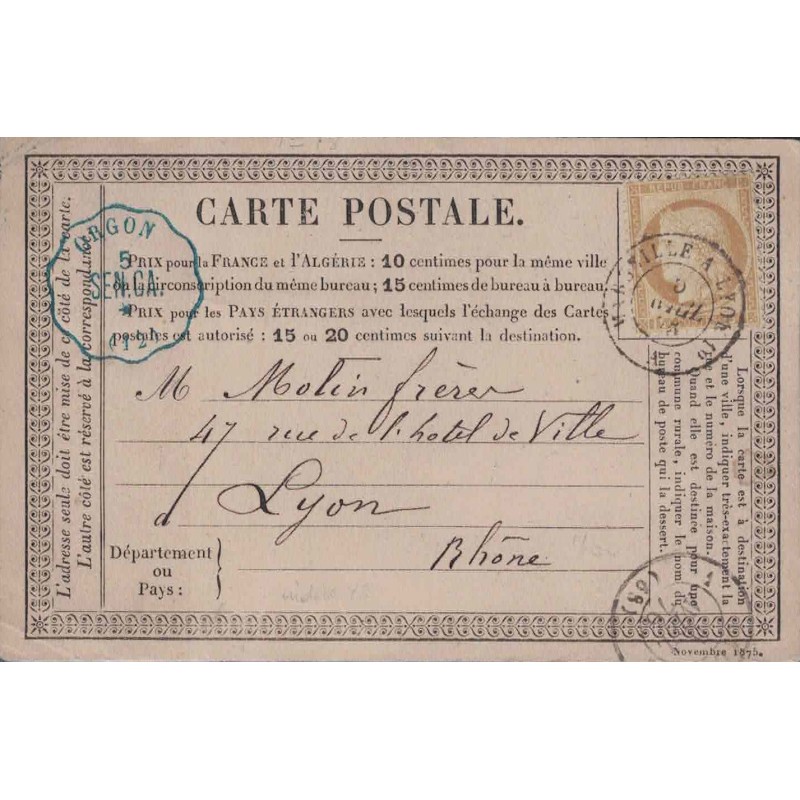 CARTE POSTALE.
PRIX pour la FRANCE et l'ALGÉRIE : 10 centimes pour la même ville
ou circonscription du même bureau ; 15 centimes de bureau à bureau.
PRIX pour les PAYS ÉTRANGERS avec lesquels l'échange des Cartes
postales est autorisé : 15 ou 20 centimes suivant la destination.
ORGON
5
SEN.CA.
REPUB. FRANC
MARSEILLE A LYON
5
AVRIL
M Molin frères
47 rue de l'hotel de Ville
à Lyon
Rhône
Département
ou
Pays :
L'adresse seule doit être mise de ce côté de la carte.
L'autre côté est réservé à la correspondance.
Lorsque la carte est à destination
d'une ville, indiquer très-exactement la
rue et le numéro de la maison.
Quand elle est destinée pour une
commune rurale, indiquer le nom du
bureau de poste qui la dessert.
(68)
Novembre 1875.